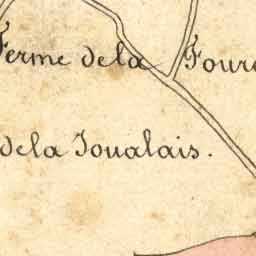 Ferme de la Four
de la Joualais.